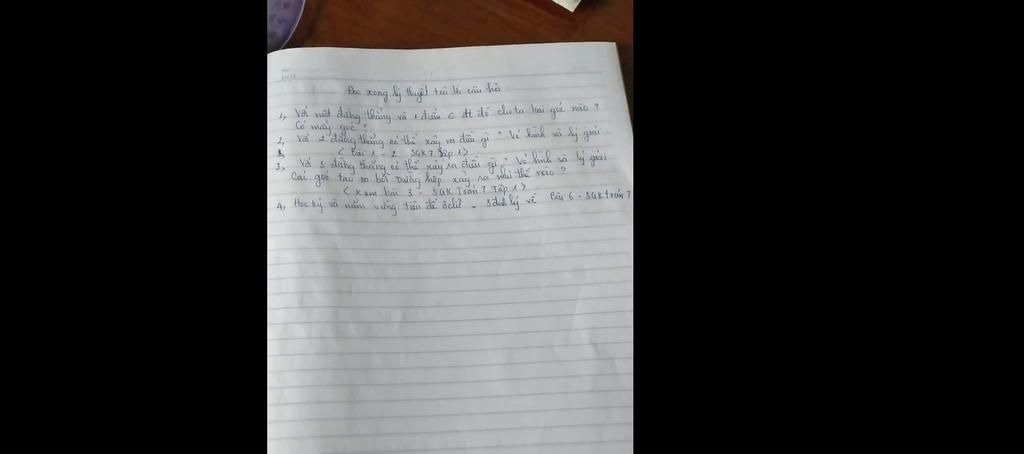 Đọc xong lý thuyết trả lời câu hỏi
1, Với một đường thẳng và 1 điểm ∈ đt đó cho ta loại góc nào ?
Có mấy góc ?
2, Với 2 đường thẳng có thể xảy ra điều gì ? Vẽ hình và lý giải.
< Bài 1 - 2 SGK 7 Tập 1 >
3, Với 3 đường thẳng có thể xảy ra điều gì ? Vẽ hình và lý giải
Các góc tạo ra bởi trường hợp xảy ra như thế nào ?
< xem bài 3 - SGK Toán 7 Tập 1 >
4, Học kỹ và nắm vững tiên đề ơclit - 3 định lý về Bài 6 - SGK toán 7